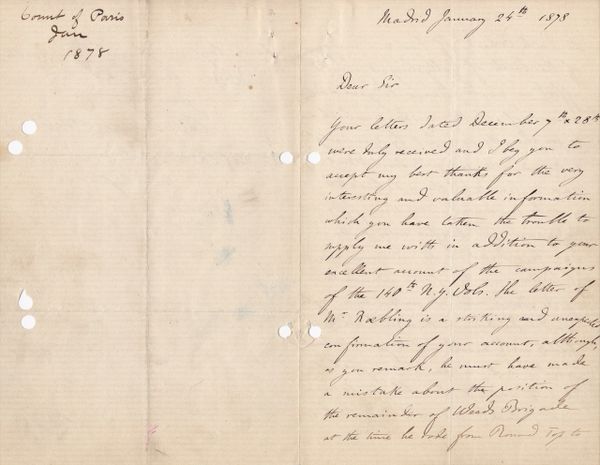 Count of Paris
Jan
1878
Madrid January 24th 1878
Dear Sir
Your letters dated December 7th & 28th
were duly received and I beg you to
accept my best thanks for the very
interesting and valuable information
which you have taken the trouble to
supply me with in addition to your
excellent account of the campaigns
of the 140th N.Y. Vols. The letter of
Mr Rœbling is a striking and unexpected
confirmation of your account, although,
as you remark, he must have made
a mistake about the position of
the remainder of Weeds Brigade
at the time he rode from Round Top to